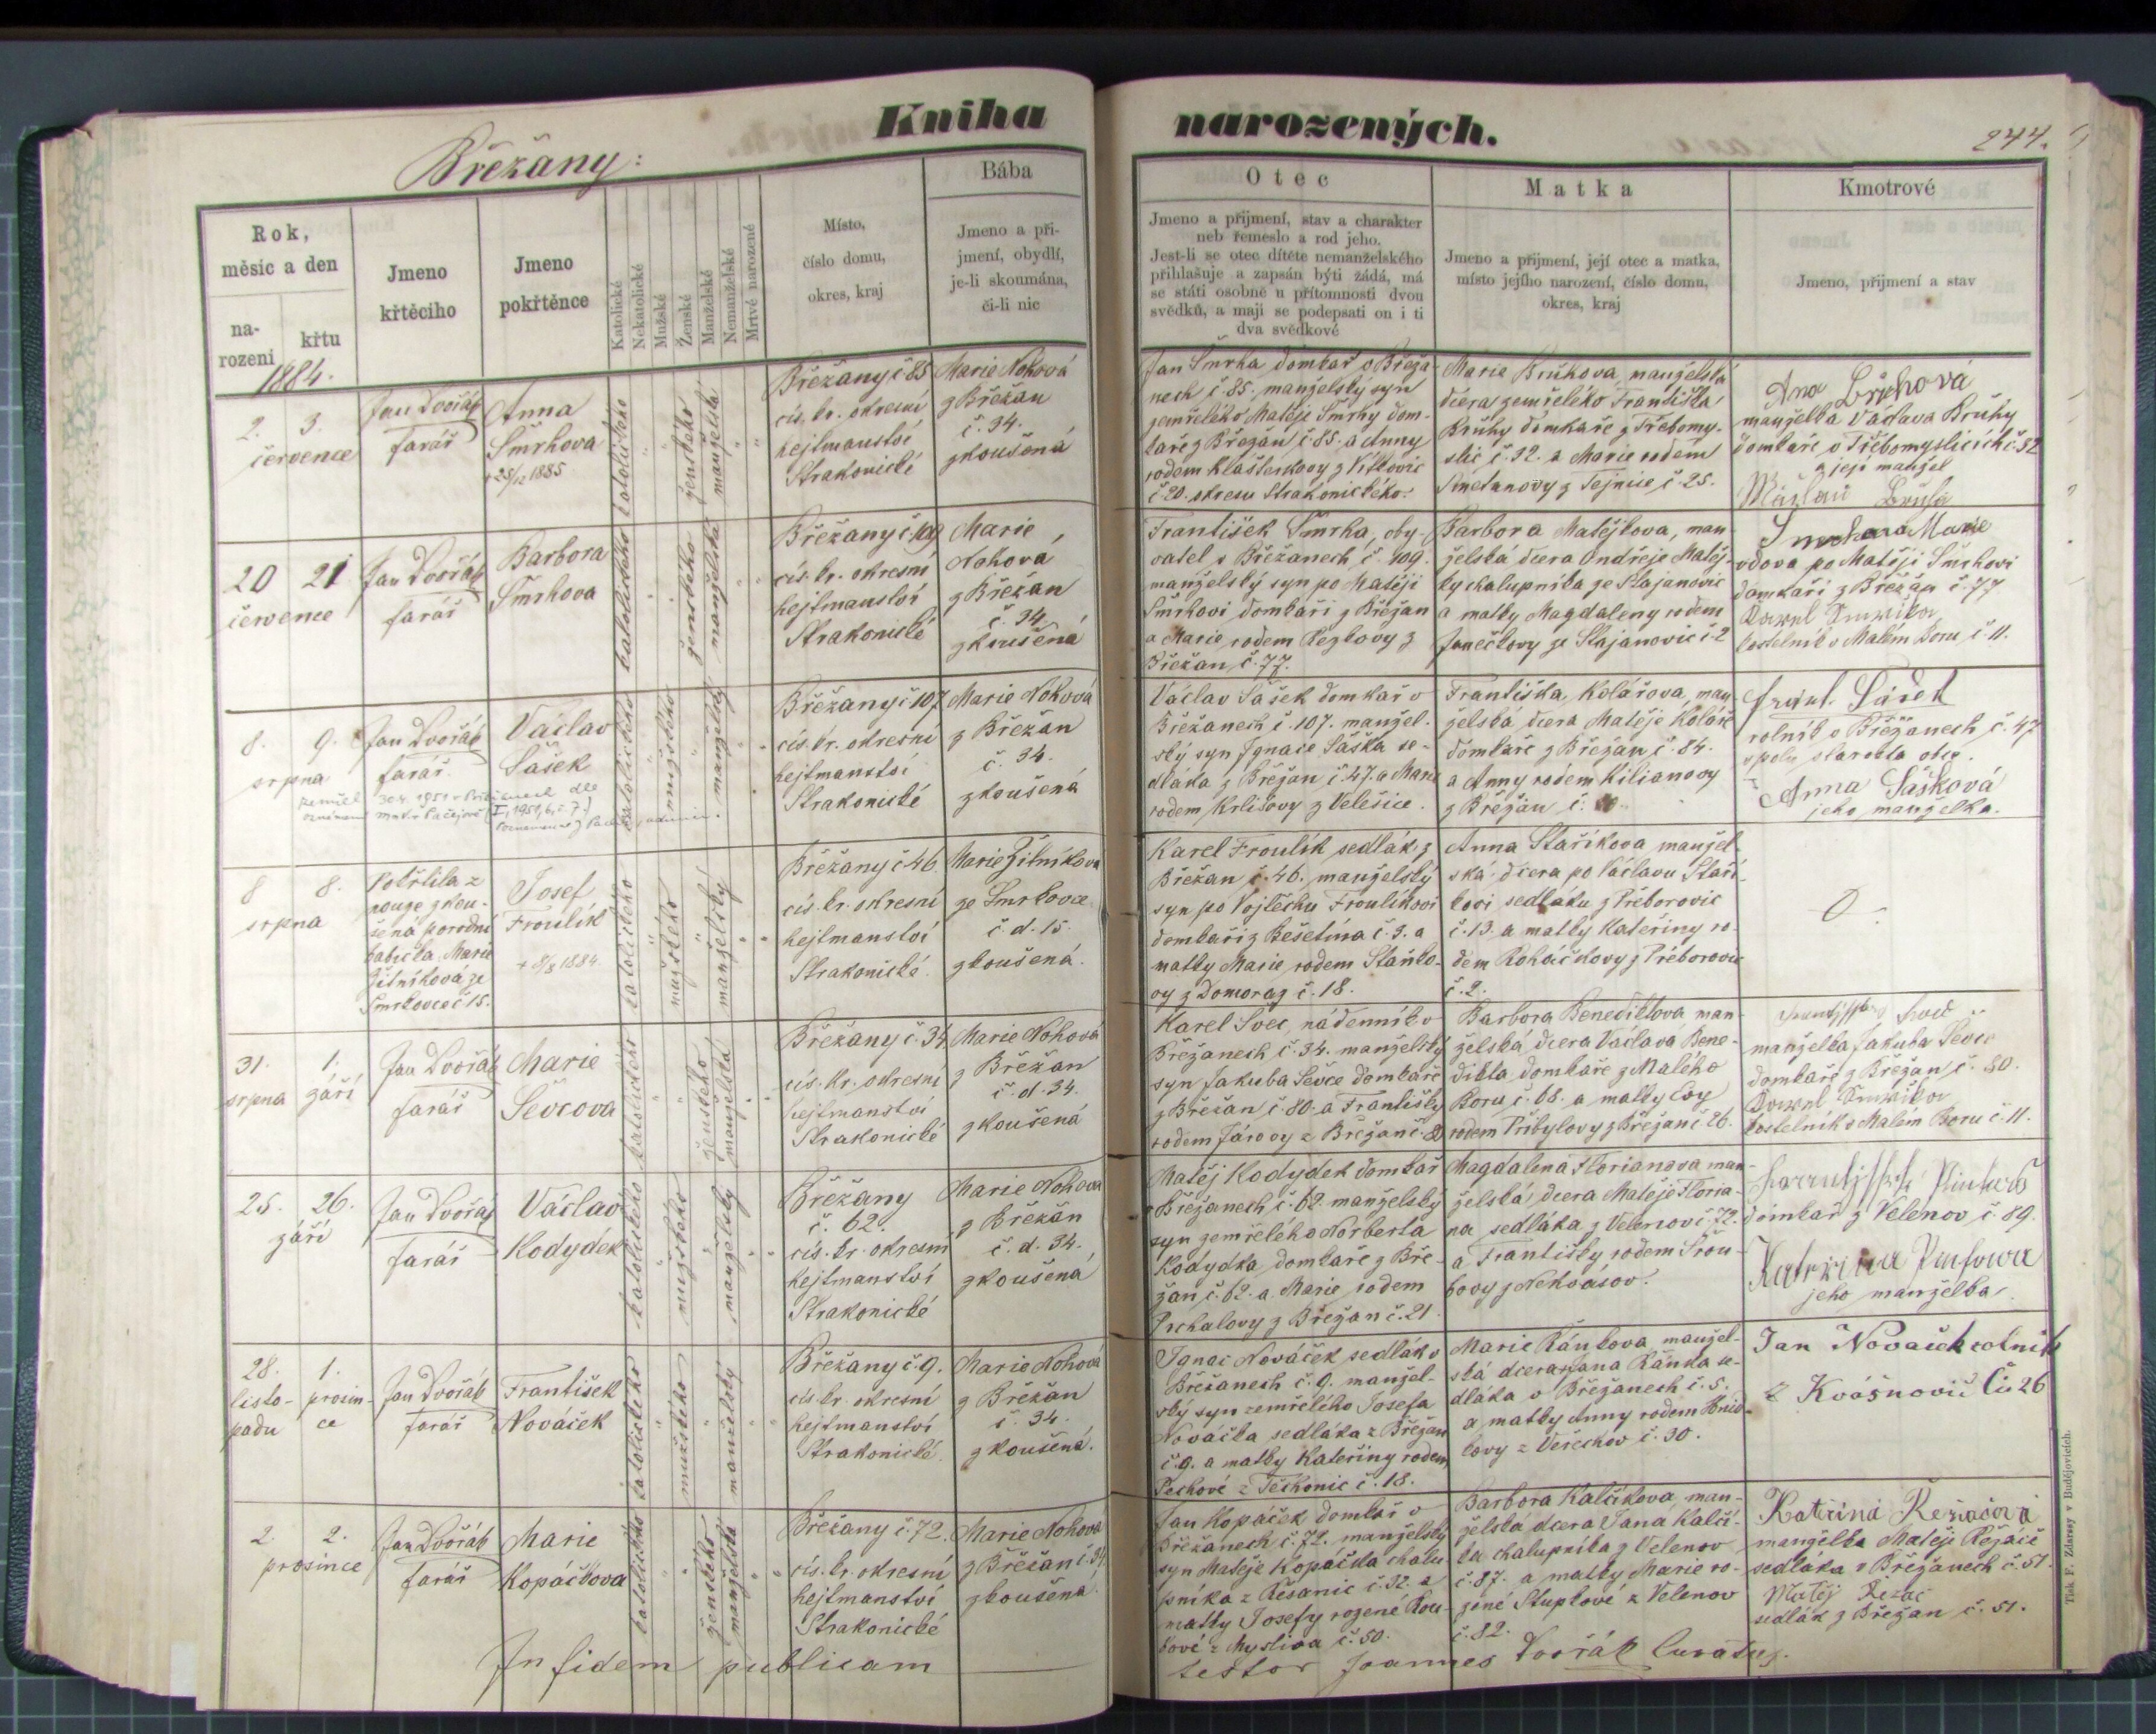 Kniha narozených.
Břežany:
244.
Rok,
měsíc a den
na-
rození
křtu
Jmeno
křtěcího
Jmeno
pokřtěnce
Katolické
Nekatolické
Mužské
Ženské
Manželské
Nemanželské
Mrtvé narozené
Místo,
číslo domu,
okres, kraj
Bába
Jmeno a při-
jmení, obydlí,
je-li skoumána,
či-li nic
Otec
Jmeno a přijmení, stav a charakter
neb řemeslo a rod jeho.
Jest-li se otec dítěte nemanželského
přihlašuje a zapsán býti žádá, má
se státi osobně u přítomnosti dvou
svědků, a mají se podepsati on i ti
dva svědkové
Matka
Jmeno a přijmení, její otec a matka,
místo jejího narození, číslo domu,
okres, kraj
Kmotrové
Jmeno, přijmení a stav
1884.
2. 3.
července
Jan Dvořák
farář
Anna
Šmrhova
+ 25/12 1885
katolického
ženského
manželská
Břežany č 85
cís. kr. okresní
hejtmanství
Strakonické
Marie Nohová
z Břežan
č. 34.
zkoušená
Jan Šmrha domkař v Břeža-
nech č. 85. manželský syn
zemřelého Matěje Šmrhy dom-
kaře z Břežan č. 85. a Anny
rodem Klášterkovy z Vítkovic
č 20. okresu Strakonického.
Marie Bruhova, manželská
dcera zemřelého Františka
Bruhy domkaře z Třebomy-
slic č. 32. a Marie rodem
Smetanovy z Tejnice č. 25.
manželka Václava Bruhy
domkaře v Třebomyslicích č. 32
a její manžel
20 21
července
Jan Dvořák
farář
Barbora
Šmrhova
katolického
ženského
manželská
Břežany č. 109
cís. kr. okresní
hejtmanství
Strakonické
Marie
Nohová
z Břežan
č. 34.
zkoušená
František Šmrha, oby-
vatel v Břežanech č. 109.
manželský syn po Matěji
Šmrhovi domkaři z Břežan
a Marie rodem
Břežan č. 77.
Barbora Matějkova, man-
želská dcera Ondřeje Matěj-
ky chalupníka ze Slajanovic
a matky Magdaleny rodem
Janečkovy ze Slajanovic č. 2
Marie
vdova po Matěji Šmrhovi
domkaři z Břežan č. 77
kostelník v Malém Boru č. 11.
8. 9.
srpna
Jan Dvořák
farář
Václav
Šašek
katolického
mužského
manželský
Břežany č 107
cís. kr. okresní
hejtmanství
Strakonické
Marie Nohová
z Břežan
č. 34.
zkoušená
Václav Šašek domkař v
Břežanech č. 107. manžel-
ský syn Ignace Šaška se-
dláka z Břežan č. 47. a Marie
rodem Krlišovy z Velešice.
Františka Kolářova, man-
želská dcera Matěje Koláře
domkaře z Břežan č. 84.
a Anny rodem Kilianovy
z Břežan č.
rolník v Břežanech č. 47
spolu starosta obce.
Anna Šašková
jeho manželka.
8 8.
srpna
Pokřtila z
nouze zkou-
šená porodní
babička Marie
Žitníková ze
Smrkovce č 15.
Josef
Froulík
+ 8/8 1884.
katolického
mužského
manželský
Břežany č 46
cís. kr. okresní
hejtmanství
Strakonické.
Marie Žitníkova
ze Smrkovce
č. d. 15.
zkoušená.
Karel Froulík sedlák z
Břežan č. 46. manželský
syn po Vojtěchu Froulíkovi
domkaři z Bešetína č. 3. a
matky Marie rodem Staňko-
vy z Domoraz č. 18.
Anna Staříkova manžel-
ská dcera po Václavu Staří-
kovi sedláku z Přeborovic
č. 13. a matky Kateřiny ro-
dem Roháčkovy z Přeborovic
č. 2.
31. 1.
srpna září
Jan Dvořák
farář
Marie
Ševcova
katolického
ženského
manželská
Břežany č. 34
cís. kr. okresní
hejtmanství
Strakonické
Marie Nohová
z Břežan
č. d. 34.
zkoušená
Karel Švec, nádenník v
Břežanech č. 34. manželský
syn Jakuba Ševce domkaře
z Břežan č. 80. a Františky
rodem Járovy z Břežan č.
Barbora Benediktova man-
želská dcera Václava Bene-
dikta, domkaře z Malého
Boru č. 68. a matky Evy
rodem Přibylovy z Břežan č. 26.
manželka Jakuba Ševce
domkaře z Břežan č. 80.
kostelník v Malém Boru č. 11.
25. 26.
září
Jan Dvořák
farář
Václav
Kodydek
katolického
mužského
manželský
Břežany
č. 62.
cís. kr. okresní
hejtmanství
Strakonické
Marie Nohova
z Břežan
č. d. 34.
zkoušená
Matěj Kodydek domkař
v Břežanech č. 62. manželský
syn zemřelého Norberta
Kodydka, domkaře z Bře-
žan č. 62. a Marie rodem
Puchalovy z Břežan č. 21.
Magdalena Florianova man-
želská dcera Matěje Floria-
na sedláka z Velenov č. 72.
a Františky rodem Šrou-
bovy z Nekvasov.
domkař z Velenov č. 89.
jeho manželka.
28. 1.
listo- prosin-
padu ce
Jan Dvořák
farář
František
Nováček
katolického
mužského
manželský
Břežany č. 9.
cís. kr. okresní
hejtmanství
Strakonické.
Marie Nohová
z Břežan
č. 34.
zkoušená.
Ignac Nováček sedlák v
Břežanech č. 9. manžel-
ský syn zemřelého Josefa
Nováčka sedláka z Břežan
č. 9. a matky Kateřiny rodem
Pechové z Těchonic č. 18.
Marie Ránkova manžel-
ská dcera Jana Ránka se-
dláka v Břežanech č. 5.
a matky Anny rodem
kovy z Veřechov č. 30.
Jan Nováček rolník
z Kvášňovic Čís 26
2. 2.
prosince
Jan Dvořák
farář
Marie
Kopáčkova
katolického
ženského
manželská
Břežany č. 72.
cís. kr. okresní
hejtmanství
Strakonické
Marie Nohova
z Břežan č. 34
zkoušena.
Jan Kopáček domkař v
Břežanech č. 72. manželský
syn Matěje Kopáčka chalu-
pníka z Řesanic č. 32. a
matky Josefy rozené Kou-
bové z Myslíva č. 50.
Barbora Kalčíkova, man-
želská dcera Jana Kalčí-
ka chalupníka z Velenov
č. 87. a matky Marie ro-
zené Stuplové z Velenov
č. 82.
Kateřina Řezáčová
manželka Matěje Řezáče
sedláka v Břežanech č. 51.
Matěj Řezáč
sedlák z Břežan č. 51.
In fidem publicam testor Joannes Dvořák Curatus.
Tisk F. Zdarssy v Budějovicích.